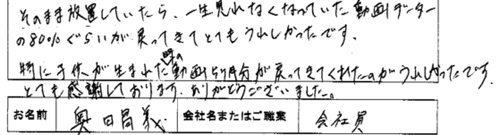 そのまま放置していたら、一生見れなくなっていた動画データー
の80%ぐらいが戻ってきてとてもうれしかったです。
特に子供が生まれた時の動画5ヶ月分が戻ってきてくれたのがうれしかったです
とても感謝しております。ありがとうございました。
お名前 奥田昌義 会社名またはご職業 会社員